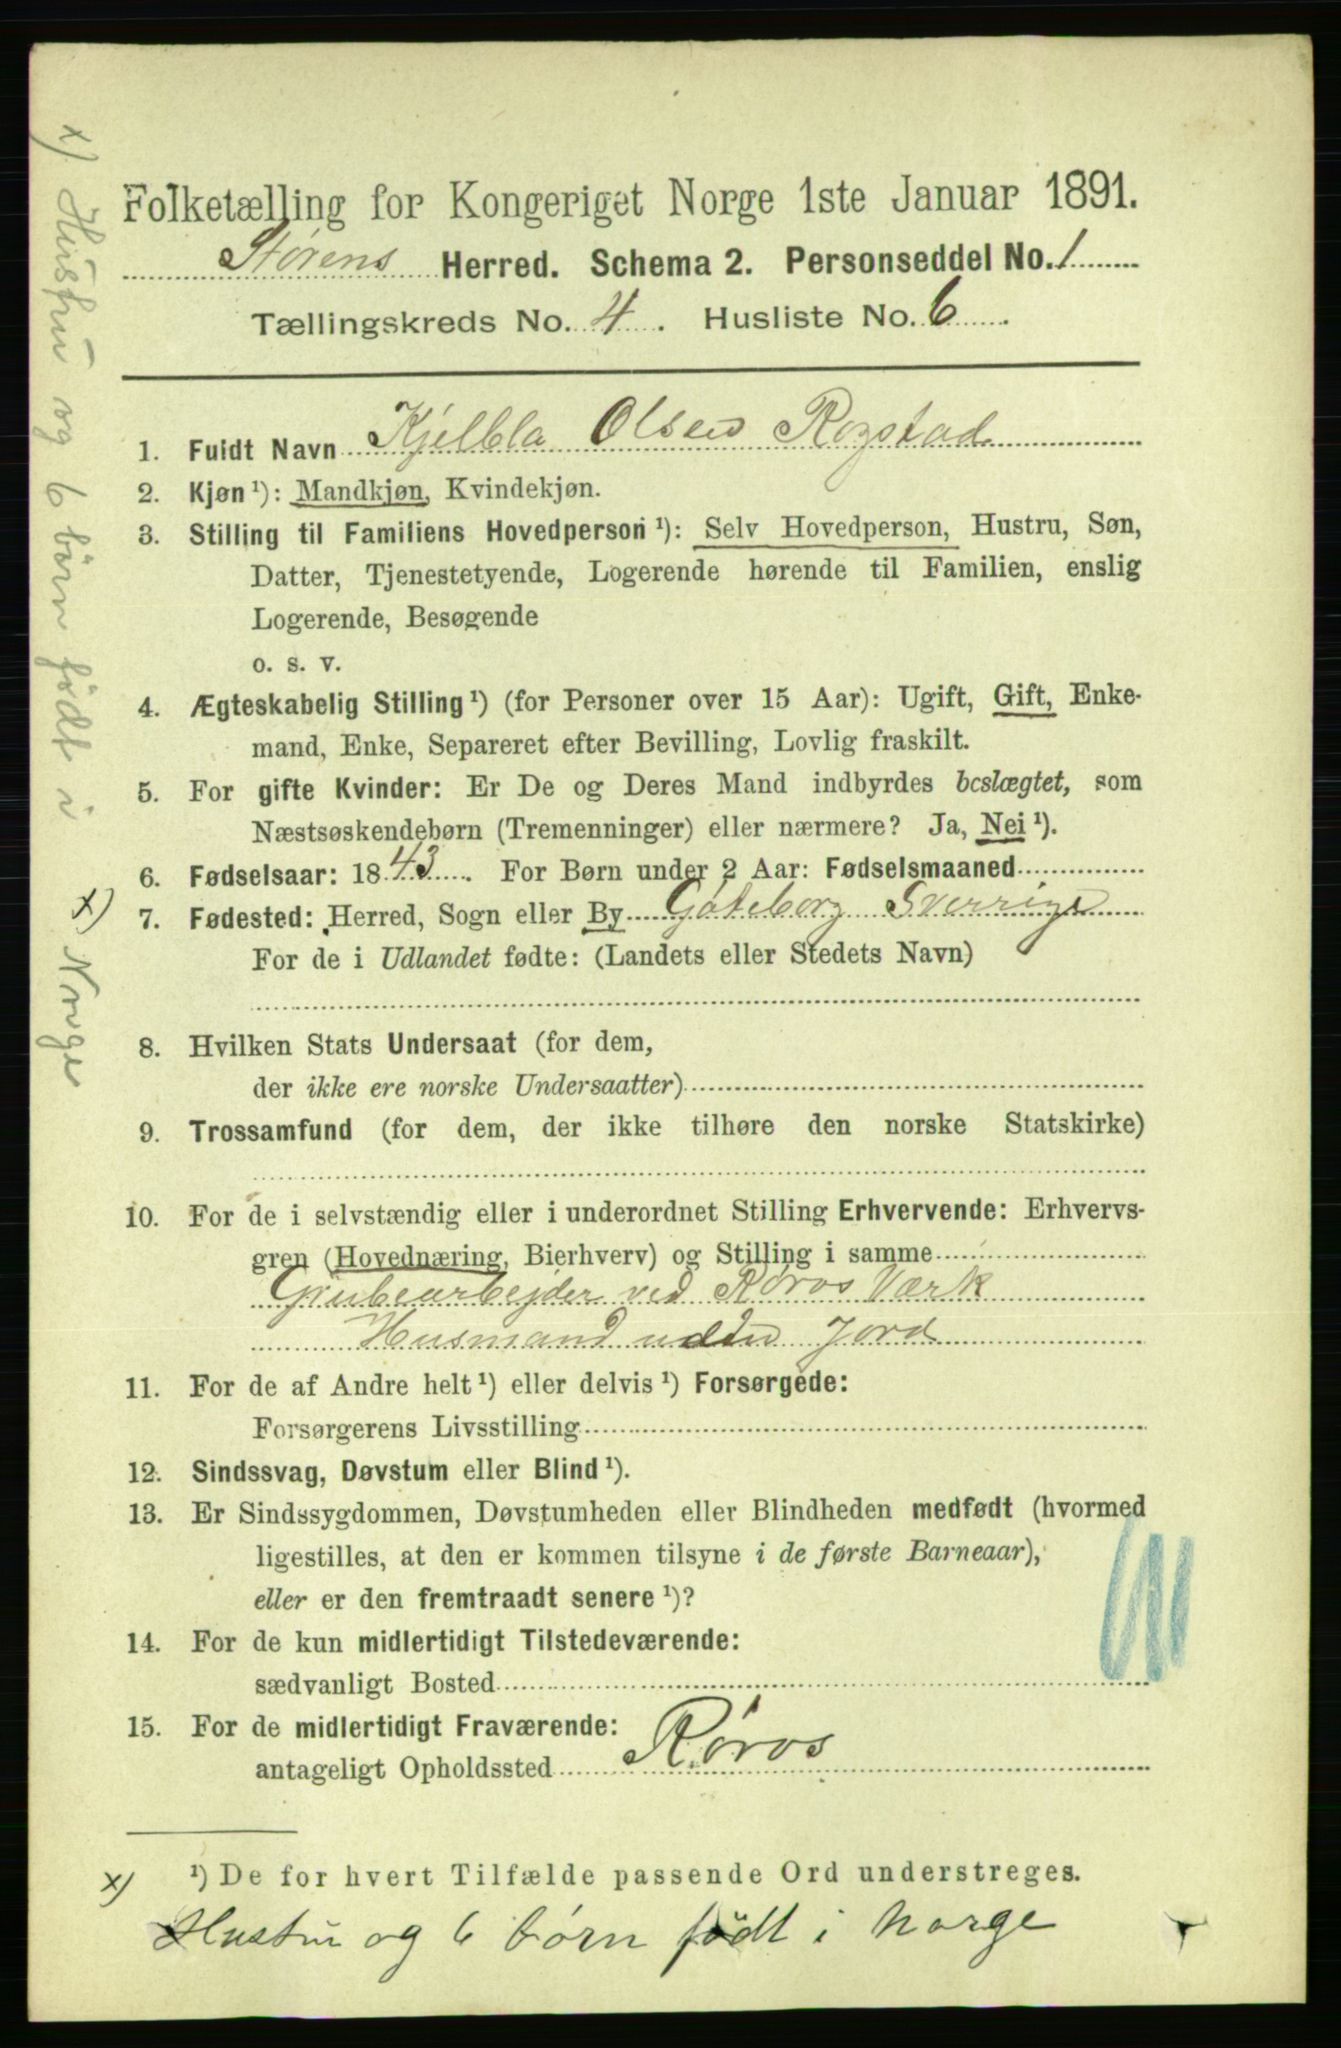 Folketælling for Kongeriget Norge 1ste Januar 1891.
Størens Herred. Schema 2. Personseddel No. 1
Tællingskreds No. 4. Husliste No. 6
1. Fuldt Navn Kjelbla Olsen Rogstad
2. Kjøn ¹): Mandkjøn, Kvindekjøn.
3. Stilling til Familiens Hovedperson ¹): Selv Hovedperson, Hustru, Søn,
Datter, Tjenestetyende, Logerende hørende til Familien, enslig
Logerende, Besøgende
o. s. v.
4. Ægteskabelig Stilling ¹) (for Personer over 15 Aar): Ugift, Gift, Enke-
mand, Enke, Separeret efter Bevilling, Lovlig fraskilt.
5. For gifte Kvinder: Er De og Deres Mand indbyrdes beslægtet, som
Næstsøskendebørn (Tremenninger) eller nærmere? Ja, Nei ¹).
6. Fødselsaar: 1843. For Børn under 2 Aar: Fødselsmaaned
7. Fødested: Herred, Sogn eller By Gøteborg Sverrige
For de i Udlandet fødte: (Landets eller Stedets Navn)
8. Hvilken Stats Undersaat (for dem,
der ikke ere norske Undersaatter)
9. Trossamfund (for dem, der ikke tilhøre den norske Statskirke)
10. For de i selvstændig eller i underordnet Stilling Erhvervende: Erhvervs-
gren (Hovednæring, Bierhverv) og Stilling i samme
Grubearbejder ved Røros Værk
Husmand uden Jord
11. For de af Andre helt ¹) eller delvis ¹) Forsørgede:
Forsørgerens Livsstilling
12. Sindssvag, Døvstum eller Blind ¹).
13. Er Sindssygdommen, Døvstumheden eller Blindheden medfødt (hvormed
ligestilles, at den er kommen tilsyne i de første Barneaar),
eller er den fremtraadt senere ¹)?
14. For de kun midlertidigt Tilstedeværende:
sædvanligt Bosted
15. For de midlertidigt Fraværende:
antageligt Opholdssted Røros
¹) De for hvert Tilfælde passende Ord understreges.
x)
Hustru og 6 børn født i Norge
x) Hustru og 6 börn födt i
x) Norge